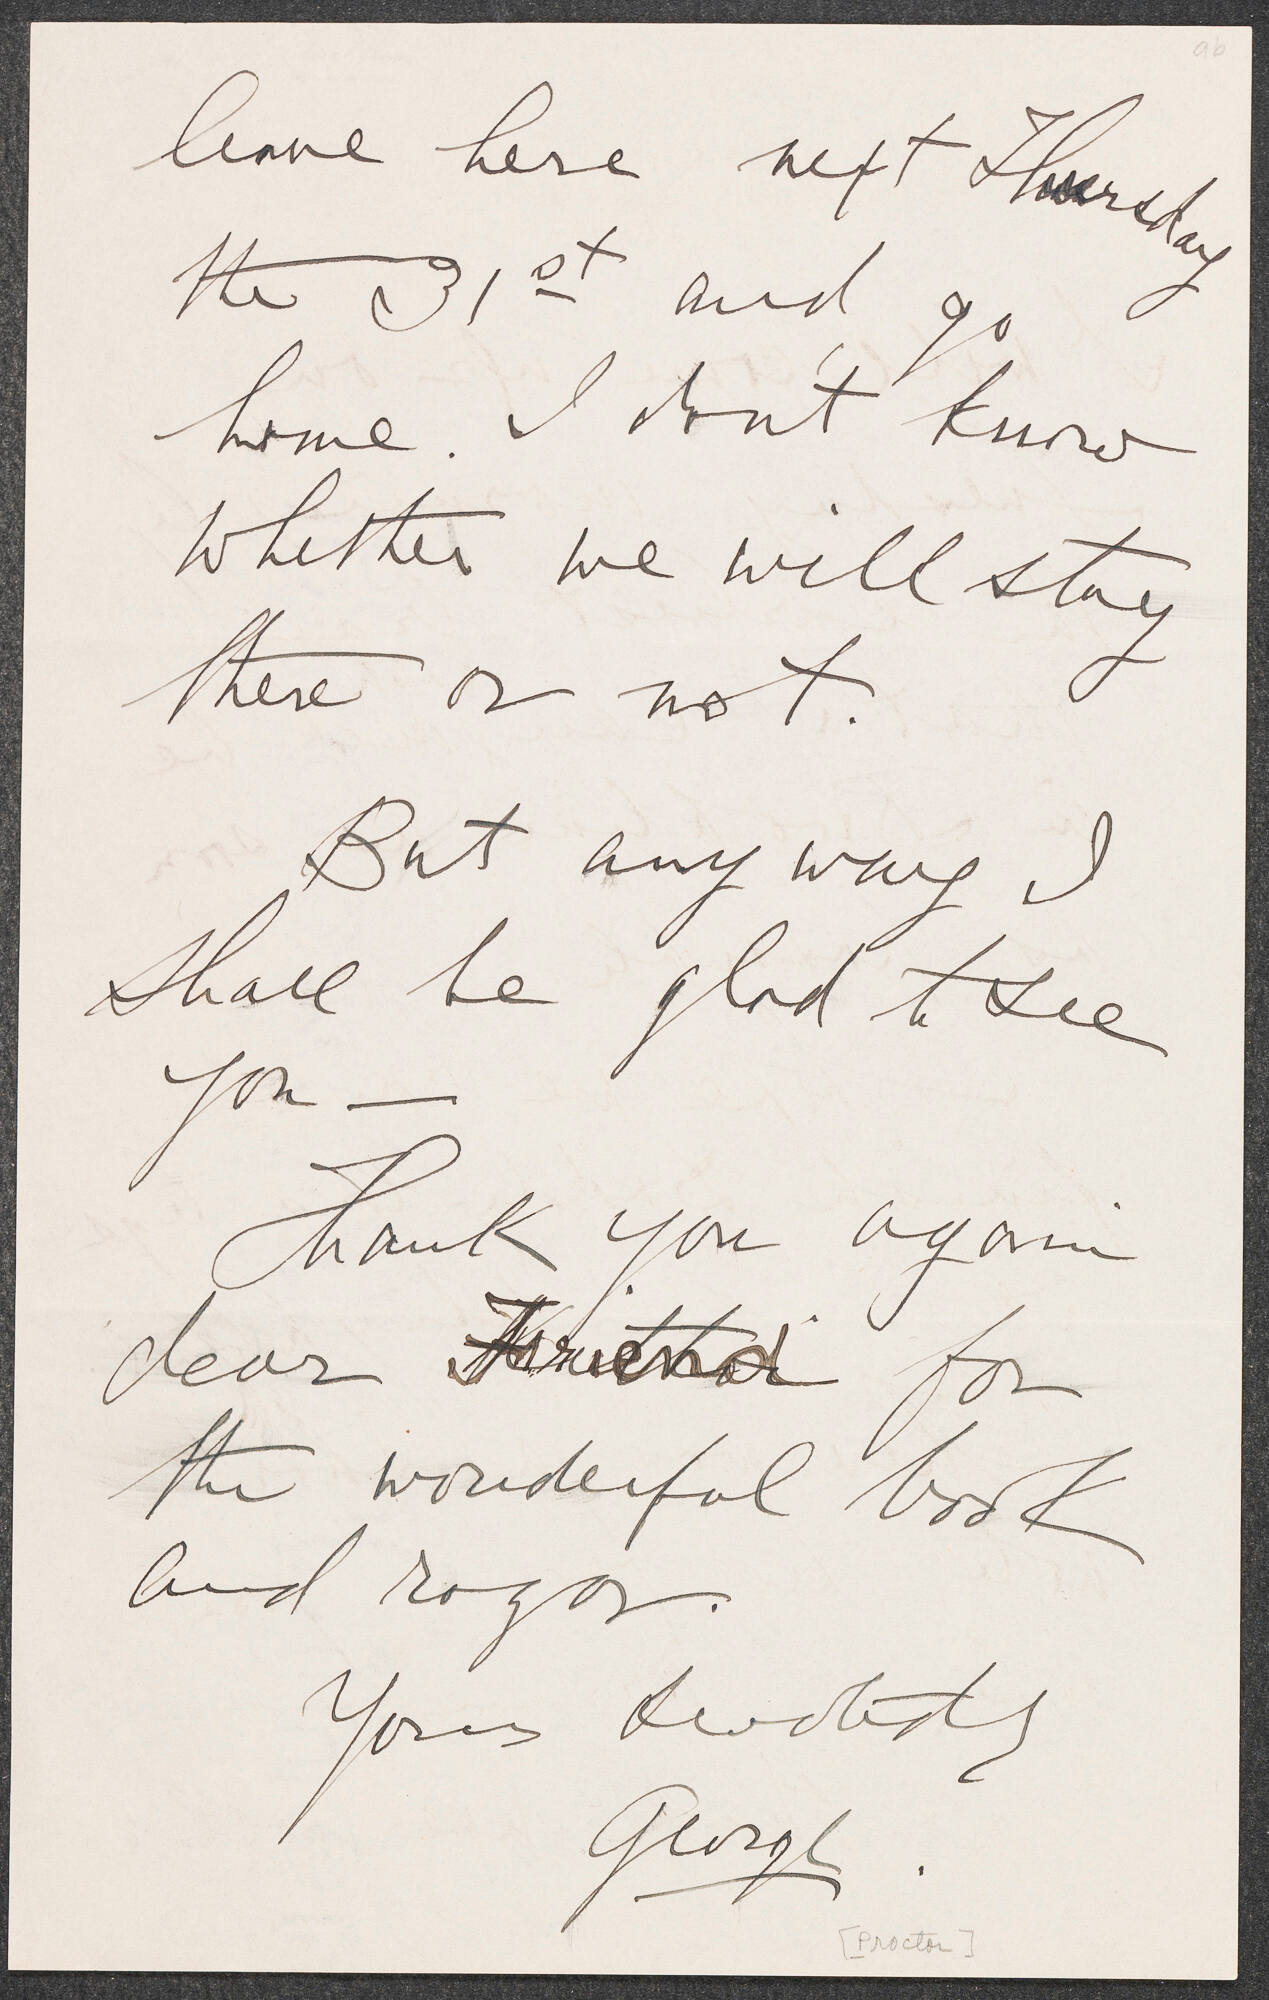 ab
leave here next Thursday
the 31st and go
home. I don't know
whether we will stay
there or not.
But any way I
shall be glad to see
you —
Thank you again
dear Friend for
the wonderful book
and razor.
Yours devotedly
George.
[Proctor]